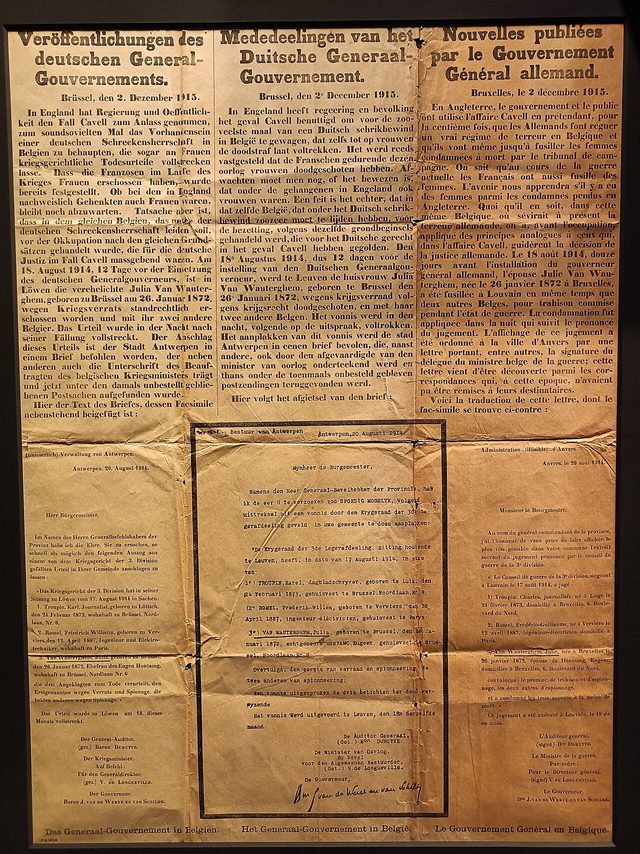 Veröffentlichungen des
deutschen General-
Gouvernements.
Brüssel, den 2. Dezember 1915.
In England hat Regierung und Oeffentlich-
keit den Fall Cavell zum Anlass genommen,
zum soundsovielten Mal das Vorhandensein
einer deutschen Schreckensherrschaft in
Belgien zu behaupten, die sogar an Frauen
kriegsgerichtliche Todesurteile vollstrecken
lasse. Dass die Franzosen im Laufe des
Krieges Frauen erschossen haben, wurde
bereits festgestellt. Ob bei den in England
nachweislich Gehenkten auch Frauen waren,
bleibt noch abzuwarten. Tatsache aber ist,
dass in dem gleichen Belgien, das unter der
deutschen Schreckensherrschaft leiden soll,
vor der Okkupation nach den gleichen Grund-
sätzen gehandelt wurde, die für die deutsche
Justiz im Fall Cavell massgebend waren. Am
18. August 1914, 12 Tage vor der Einsetzung
des deutschen Generalgouverneurs, ist in
Löwen die verehelichte Julia Van Wauter-
ghem, geboren zu Brüssel am 26. Januar 1872,
wegen Kriegsverrats standrechtlich er-
schossen worden und mit ihr zwei andere
Belgier. Das Urteil wurde in der Nacht nach
seiner Fällung vollstreckt. Der Anschlag
dieses Urteils ist der Stadt Antwerpen in
einem Brief befohlen worden, der neben
anderen auch die Unterschrift des Beauf-
tragten des belgischen Kriegsministers trägt
und jetzt unter den damals unbestellt geblie-
benen Postsachen aufgefunden wurde.
Hier der Text des Briefes, dessen Facsimile
nebenstehend beigefügt ist :
Mededeelingen van het
Duitsche Generaal-
Gouvernement.
Brussel, den 2n December 1915.
In Engeland heeft regeering en bevolking
het geval Cavell benuttigd om voor de zoo-
veelste maal van een Duitsch schrikbewind
in België te gewagen, dat zelfs tot op vrouwen
de doodstraf laat voltrekken. Het werd reeds
vastgesteld dat de Franschen gedurende dezen
oorlog vrouwen doodgeschoten hebben. Af-
wachten moet men nog, of het bewezen is,
dat onder de gehangenen in Engeland ook
vrouwen waren. Een feit is het echter, dat in
dat zelfde België, dat onder het Duitsch schrik-
bewind zoozeer moet te lijden hebben, voor
de bezetting, volgens dezelfde grondbeginsels
gehandeld werd, die voor het Duitsche gerecht
in het geval Cavell hebben gegolden. Den
18n Augustus 1914, dus 12 dagen vóór de
instelling van den Duitschen Generaalgou-
verneur, werd te Leuven de huisvrouw Julia
Van Wauterghem, geboren te Brussel den
26n Januari 1872, wegens krijgsverraad vol-
gens krijgsrecht doodgeschoten, en met haar
twee andere Belgen. Het vonnis werd in den
nacht, volgende op de uitspraak, voltrokken.
Het aanplakken van dit vonnis werd de stad
Antwerpen in eenen brief bevolen die, naast
andere, ook door den afgevaardigde van den
minister van oorlog onderteekend werd en
thans onder de toenmaals onbesteld gebleven
postzendingen teruggevonden werd.
Hier volgt het afgietsel van den brief :
Nouvelles publiées
par le Gouvernement
Général allemand.
Bruxelles, le 2 décembre 1915.
En Angleterre, le gouvernement et le public
ont utilisé l'affaire Cavell en prétendant, pour
la centième fois, que les Allemands font régner
un vrai régime de terreur en Belgique et
qu'ils vont même jusqu'à fusiller les femmes
condamnées à mort par le tribunal de cam-
pagne. On sait qu'au cours de la guerre
actuelle les Français ont aussi fusillé des
femmes. L'avenir nous apprendra s'il y a eu
des femmes parmi les condamnés pendus en
Angleterre. Quoi qu'il en soit, dans cette
même Belgique où sévirait à présent la
terreur allemande, on a, avant l'occupation,
appliqué des principes analogues à ceux qui,
dans l'affaire Cavell, guidèrent la décision de
la justice allemande. Le 18 août 1914, douze
jours avant l'installation du gouverneur
général allemand, l'épouse Julie Van Wau-
terghem, née le 26 janvier 1872 à Bruxelles,
a été fusillée à Louvain en même temps que
deux autres Belges, pour trahison commise
pendant l'état de guerre. La condamnation fut
appliquée dans la nuit qui suivit le prononcé
du jugement. L'affichage de ce jugement a
été ordonné à la ville d'Anvers par une
lettre portant, entre autres, la signature du
délégué du ministre belge de la guerre; cette
lettre vient d'être découverte parmi les cor-
respondances qui, à cette époque, n'avaient
pu être remises à leurs destinataires.
Voici la traduction de cette lettre, dont le
fac-similé se trouve ci-contre :
(unleserlich)-Verwaltung von Antwerpen
Antwerpen, 20. August 1914.
Herr Bürgermeister,
Im Namen des Herrn Generalbefehlshabers der
Provinz habe ich die Ehre, Sie zu ersuchen, so
schnell als möglich den folgenden Auszug aus
einem von dem Kriegsgericht der 3. Division
gefällten Urteil in Ihrer Gemeinde anschlagen zu
lassen :
«Das Kriegsgericht der 3. Division hat in seiner
Sitzung zu Löwen am 17. August 1914 in Sachen:
1. Troupin, Karl, Journalist, geboren zu Lüttich,
den 24. Februar 1873, wohnhaft zu Brüssel, Nord-
laan, Nr. 8,
2. Romel, Friedrich Wilhelm, geboren zu Ver-
viers, den 12. April 1887, Ingenieur und Elektro-
techniker, wohnhaft zu Paris,
den 26 Januar 1872, Ehefrau des Eugen Hontang,
wohnhaft zu Brüssel, Nordlaan Nr. 6
die drei Angeklagten zum Tode verurteilt, den
Erstgenannten wegen Verrats und Spionage, die
beiden anderen wegen Spionage. »
Das Urteil wurde zu Löwen am 18. dieses
Monats vollstreckt.
Der General-Auditor,
(gez.) Baron Durutte.
Der Kriegsminister,
Auf Befehl:
Für den Generaldirektor,
(gez.) V. de Longueville.
Der Gouverneur,
Baron J. van de Werve en van Schilde.
Bestuur van Antwerpen
Antwerpen, 20 Augusti 1914
Mynheer de Burgemeester,
Namens den Heer Generaal-Bevelhebber der Provincie, heb
ik de eer U te verzoeken zoo SPOEDIG MOGELYK, volgend
uittreksel uit een vonnis door den Krygsraad der 3de Le-
gerafdeeling geveld in uwe gemeente te doen aanplakken:
"De Krygsraad der 3de Legerafdeeling, zitting houdende
te Leuven, heeft, in dato van 17 Augusti 1914, in zake
van:
1° TROUPIN, Karel, dagbladschryver, geboren te Luik, den
24 Februari 1873, gehuisvest te Brussel Noordlaan, N° 8,
2° ROMEL, Frederik-Willem, geboren te Verviers, den 12
April 1887, ingenieur-électricien, gehuisvest te Parys;
3° VAN WAUTERGHEM, Julia, geboren te Brussel, den 26 Ja-
nuari 1872, echtgenoote HONTANG, Eugeen, gehuisvest te Brus-
sel, Noordlaan N° 6,
Overtuigd: den eerste van verraad en spionneering, de
twee anderen van spionneering;
Een vonnis uitgesproken de drie betichten ter dood ver-
wyzende
Het vonnis werd uitgevoerd te Leuven, den 18n dezelfde
maand.
De Auditor Generaal,
(Get.) Bon DURUTTE.
De Minister van Oorlog,
By bevel
Voor den Algemeenen Bestuurder,
(Get.) V.de Longueville.
De Gouverneur,
Bon J van de Werve en van Schilde
Administration (illisible) d'Anvers
Anvers, le 20 août 1914.
Monsieur le Bourgmestre,
Au nom du général commandant de la province,
j'ai l'honneur de vous prier de faire afficher, le
plus vite possible, dans votre commune l'extrait
suivant du jugement prononcé par le conseil de
guerre de la 3e division.
« Le Conseil de guerre de la 3e division, siégeant
à Louvain le 17 août 1914, a jugé :
1. Troupin, Charles, journaliste, né à Liége le
24 février 1873, domicilié à Bruxelles, 8, Boule-
vard du Nord.
2. Romel, Frédéric-Guillaume, né à Verviers le
12 avril 1887, ingénieur-électricien, domicilié à
Paris.
3. Van Wauterghem, Julie, née à Bruxelles le
26 janvier 1872, épouse de Hontang, Eugène,
domiciliée à Bruxelles, 6, Boulevard du Nord.
convaincus : le premier, de trahison et d'espion-
nage, les deux autres, d'espionnage.
et a condamné les trois accusés à la peine de
mort. »
Ce jugement a été exécuté à Louvain, le 18 de
ce mois.
L'Auditeur général,
(signé) Bon Durutte.
Le Ministre de la guerre,
Par ordre :
Pour le Directeur général,
(signé) V. de Longueville.
Le Gouverneur,
Bon J. van de Werve en van Schilde.
Das General-Gouvernement in Belgien.
Het Generaal-Gouvernement in België.
Le Gouvernement Général en Belgique.